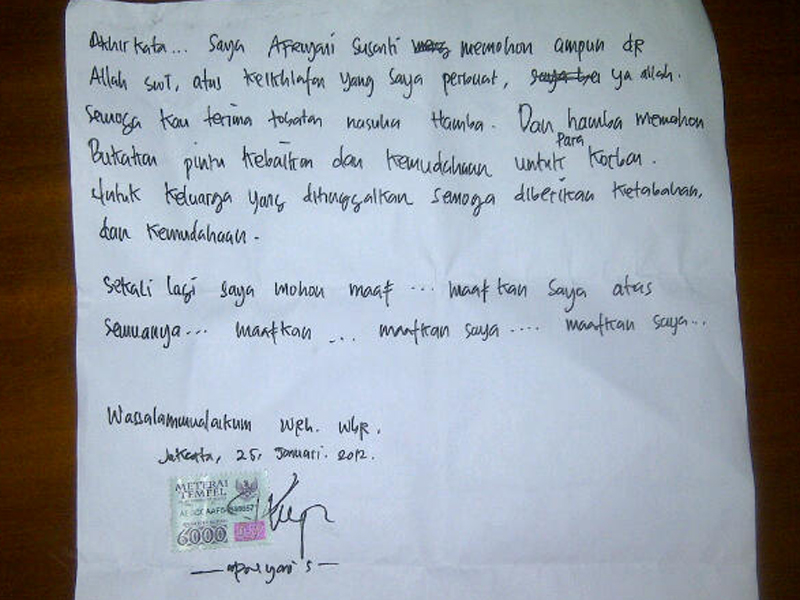 Akhir kata... Saya Afriyani Susanti memohon ampun dr
Allah swt, atas kekhilafan yang saya perbuat, ya allah.
Semoga kau terima tobatan nasuha Hamba. Dan hamba memohon
Bukakan pintu kebaikan dan kemudahaan untuk para korban.
Untuk keluarga yang ditinggalkan semoga diberikan ketabahan,
dan kemudahaan.
Sekali lagi saya mohon maaf ... maafkan saya atas
semuanya... maafkan ... maafkan saya .... maafkan saya...
Wassalammualaikum Wrh. Wbr.
Jakarta, 25, Januari. 2012.
METERAI
TEMPEL
6000
Apriyani S